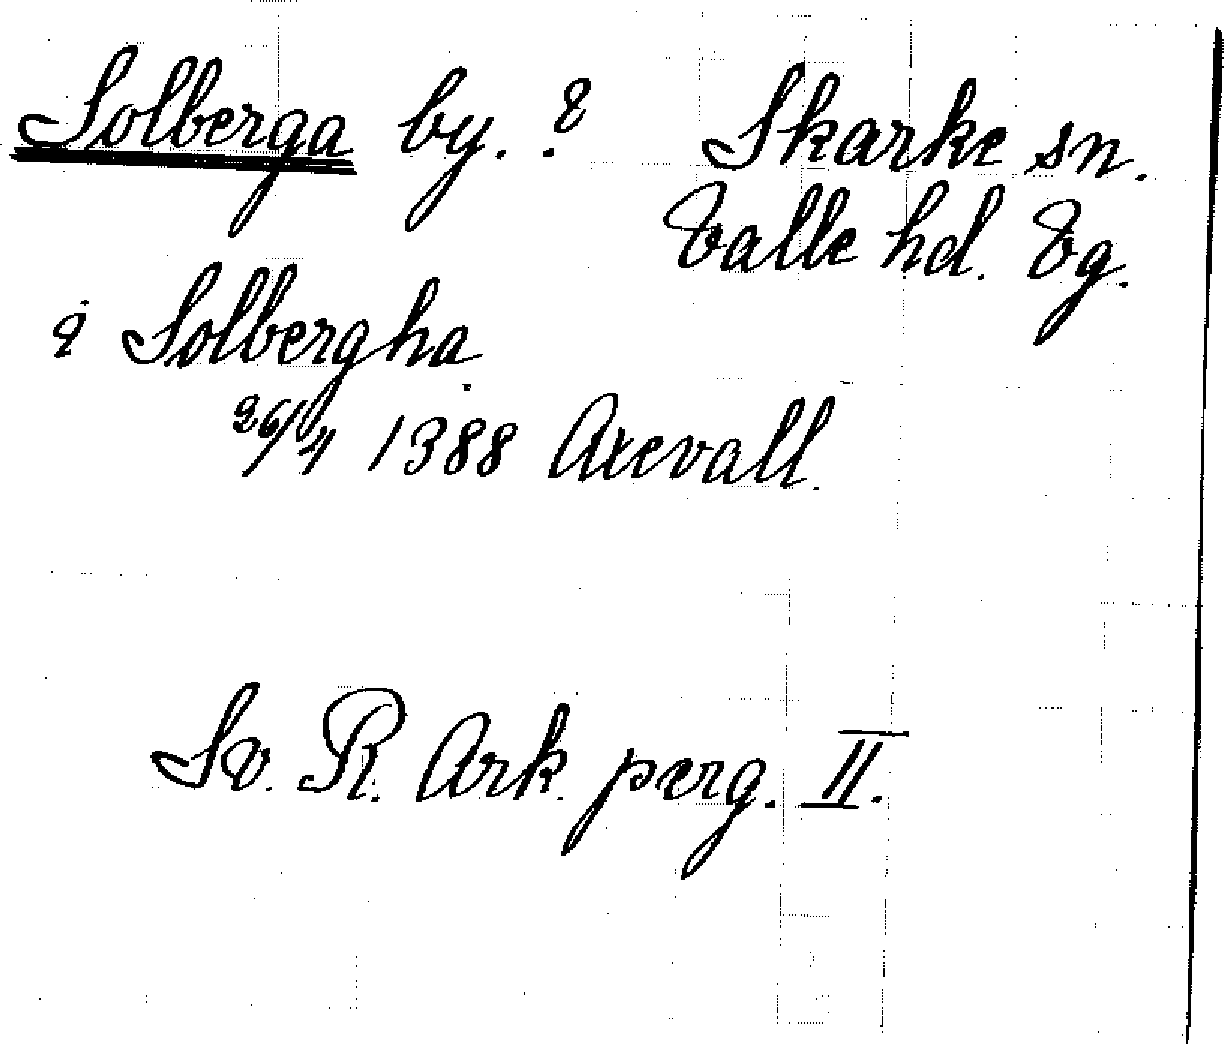 Solberga by. ? Skarke sn.
Valle hd. Vg.
i Solbergha
26/4 1388 Axevall.
Sv. R. Ark. perg. II.